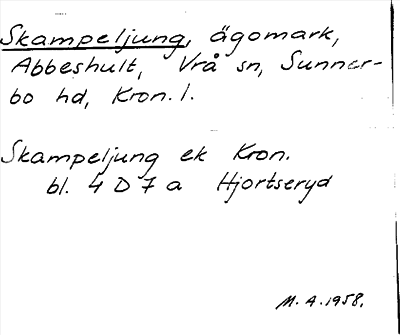 Skampeljung, ägomark,
Abbeshult, Vrå sn, Sunner-
bo hd, Kron. l.
Skampeljung ek Kron.
bl. 4 D 7 a Hjortseryd
M. A. 1958.